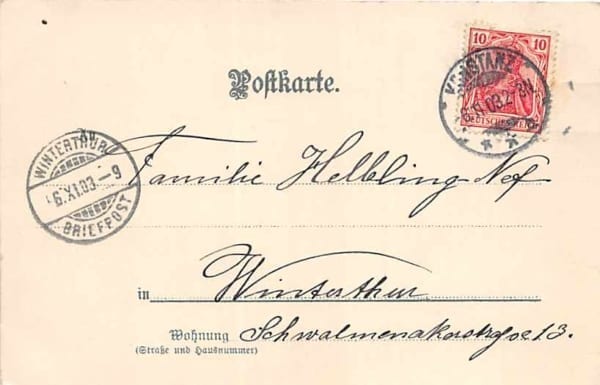 10 10
DEUTSCHES REICH
KONSTANZ
Postkarte.
WINTERTHUR
6.XI.03.-9
BRIEFPOST
Familie Helbling Nef
in Winterthur
Wohnung Schwalmenakerstrasse 13.
(Straße und Hausnummer)